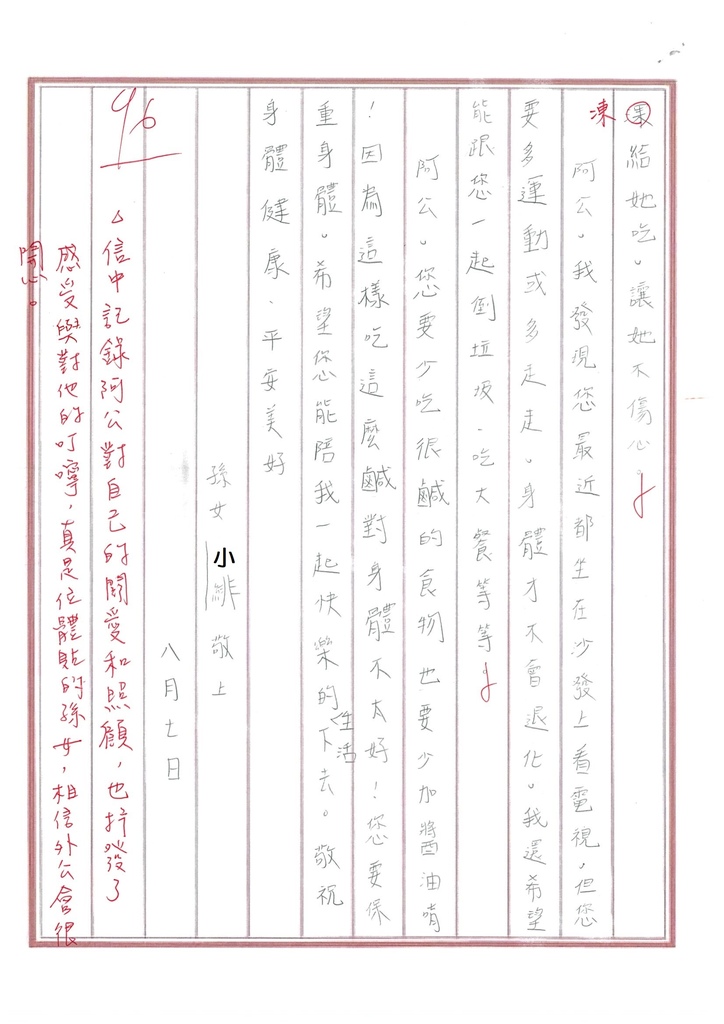 果給她吃。讓她不傷心。
凍
阿公。我發現您最近都坐在沙發上看電視，但您
要多運動或多走走。身體才不會退化。我還希望
能跟您一起倒垃圾、吃大餐等等
阿公。您要少吃很鹹的食物也要少加醬油唷
！因為這樣吃這麼鹹對身體不太好！您要保
重身體。希望您能陪我一起快樂的下去。敬祝
生活
身體健康、平安美好
孫女小緋敬上
八月七日
96
△信中記錄阿公對自己的關愛和照顧，也抒發了
感受與對他的叮嚀，真是位體貼的孫女，相信外公會很
開心。